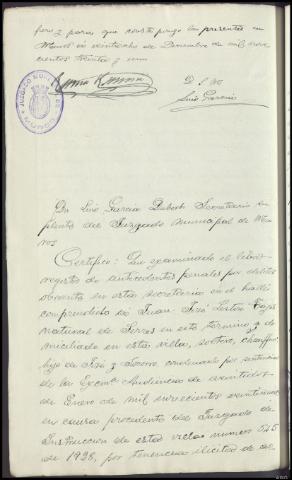 pero y para que conste pongo la presente en
Muros a veintiocho de Diciembre de mil nove
cientos treinta y uno
Luis Garcia
JUZGADO MUNICIPAL
MUROS
Dn Luis Garcia Secretario su
plente del Juzgado municipal de Mu
ros
Certifico: Que examinado el libro
registro de antecedentes penales por delitos
obrante en esta secretaria en el hallo
comprendido a Juan José Lestón
natural de Serres en este termino y do
miciliado en esta villa, soltero, chauffeur
hijo de José y Socorro, condenado por sentencia
de la Excma Audiencia de veintidos
de Enero de mil novecientos veintinueve
en causa procedente del Juzgado de
Instruccion de esta villa numero 545
de 1928, por tenencia ilicita de ar